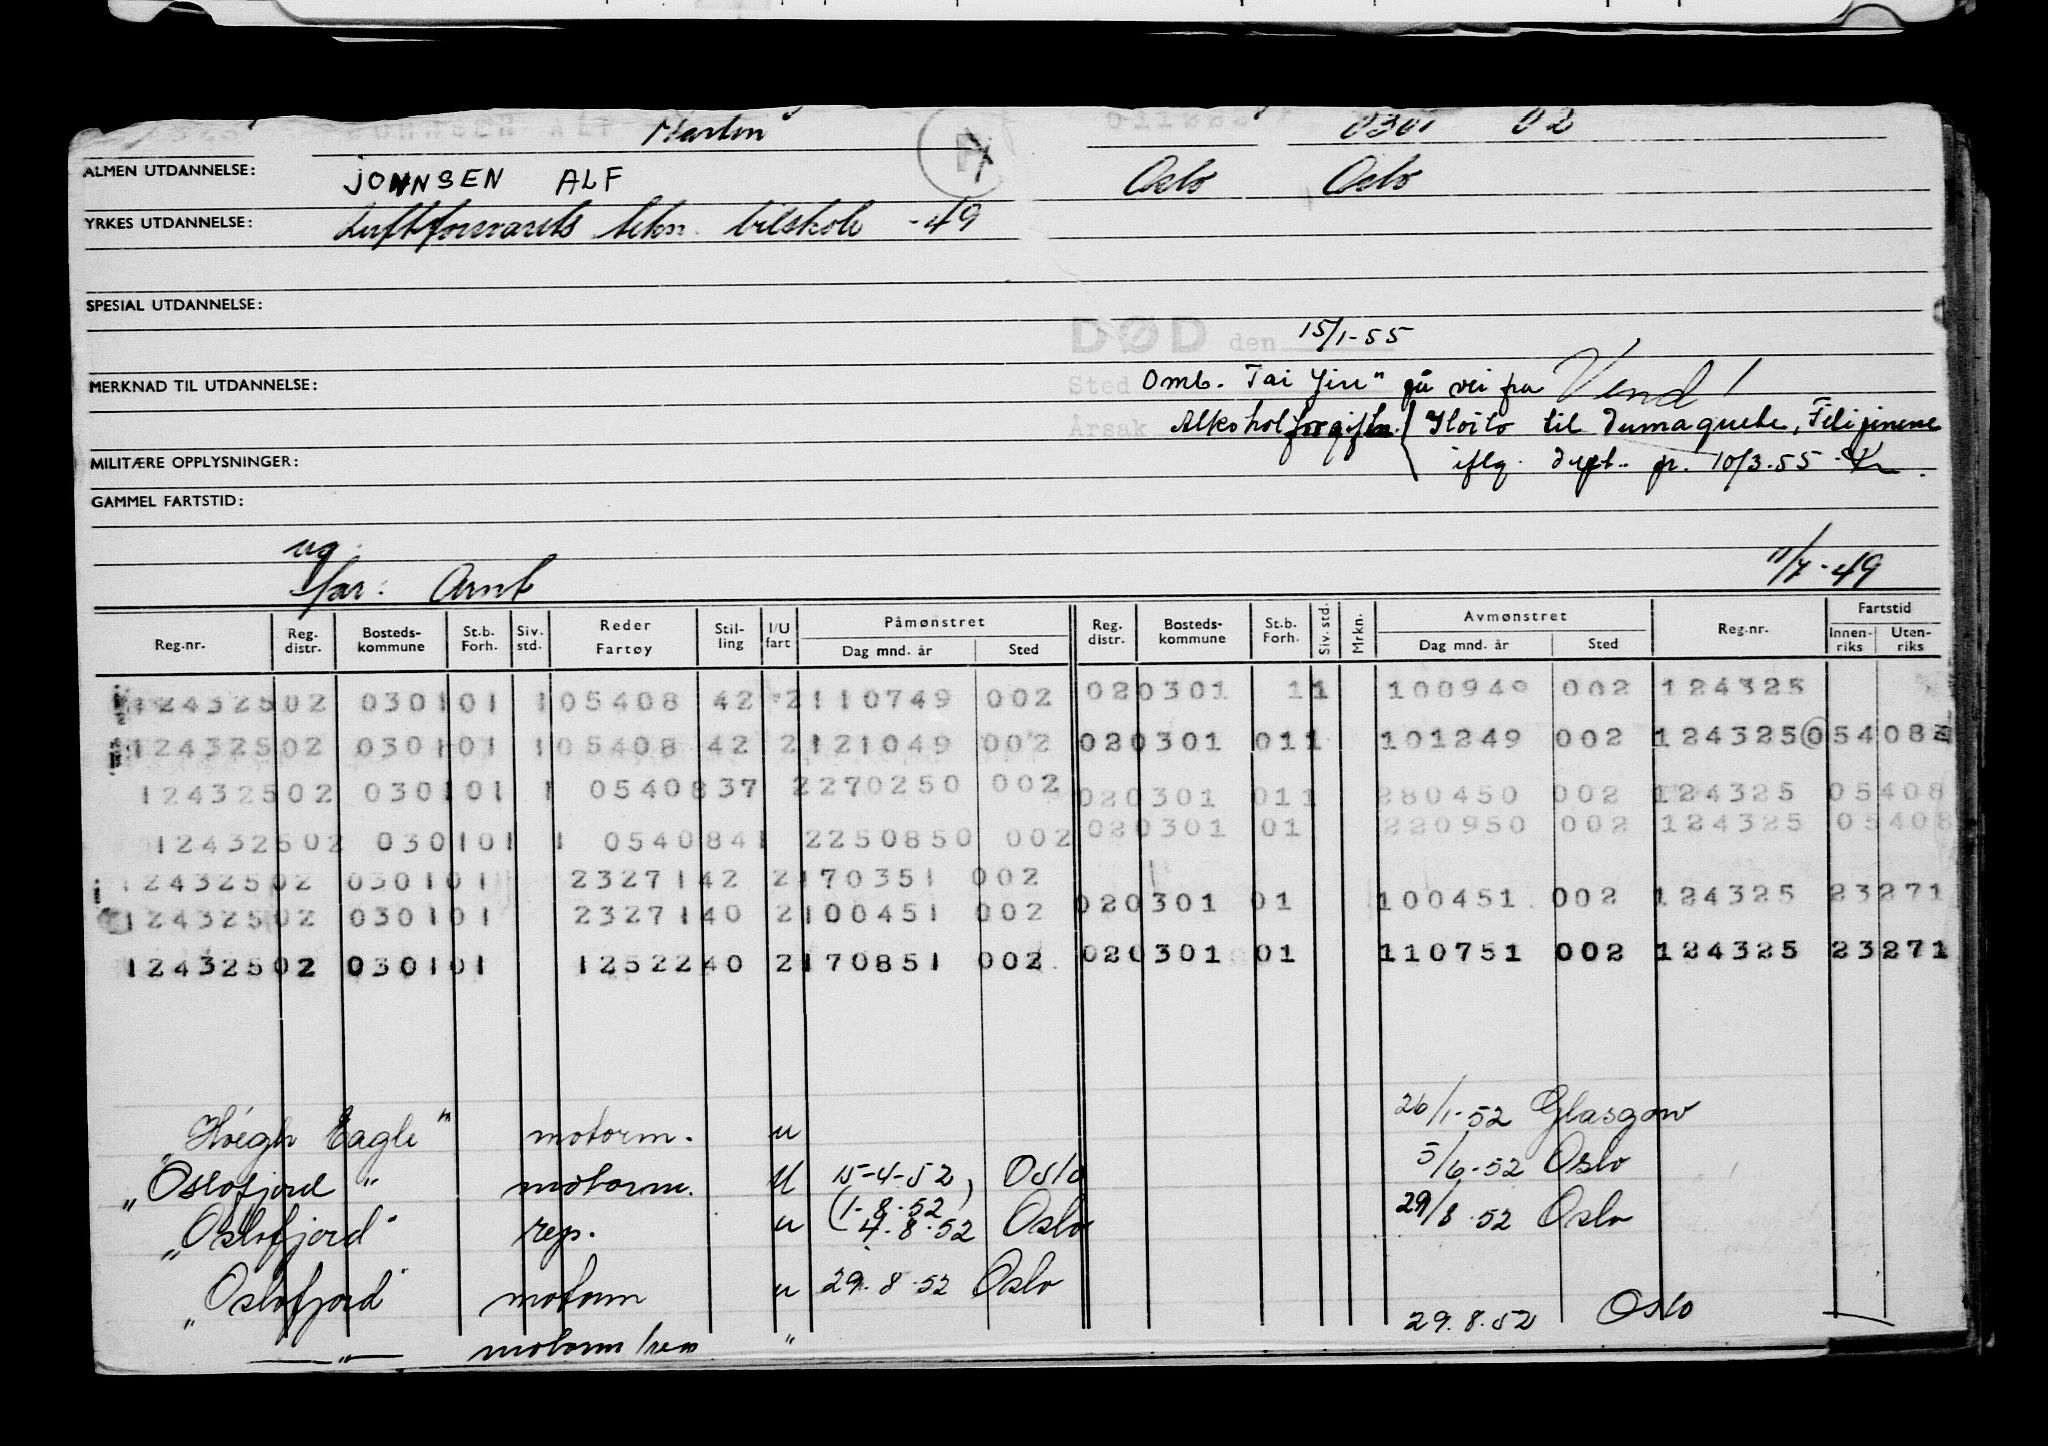 JOHNSEN ALF Martin 0301 02
ALMEN UTDANNELSE: JOHNSEN ALF Oslo Oslo
YRKES UTDANNELSE: Luftforsvarets tekn. bilskole -49
SPESIAL UTDANNELSE:
DØD den 15/1-55
MERKNAD TIL UTDANNELSE: Sted Omb. Tai Yin" på vei fra Vend!
Årsak Alkoholforgiftn. Iloilo til Dumaquete, Filipinene
MILITÆRE OPPLYSNINGER: iflg. dept. pr. 10/3-55.
GAMMEL FARTSTID:
ug.
far: Arnt 11/7-49
Reg.nr. Reg. distr. Bosteds- kommune St.b. Forh. Siv. std. Reder Fartøy Stil- ling I/U fart Påmønstret Dag mnd. år Sted Reg. distr. Bosteds- kommune St.b. Forh. Siv. std. Mrkn. Avmønstret Dag mnd. år Sted Reg.nr. Fartstid Innen- riks Uten- riks
124325 02 0301 01 1 05408 42 2 110749 002 02 0301 1 1 100949 002 124325
124325 02 0301 01 1 05408 42 2 121049 002 02 0301 01 1 101249 002 124325 05408
124325 02 0301 01 1 05408 37 2 270250 002 02 0301 01 1 280450 002 124325 05408
124325 02 0301 01 1 05408 41 2 250850 002 02 0301 01 220950 002 124325 05408
124325 02 0301 01 23271 42 2 170351 002
124325 02 0301 01 23271 40 2 100451 002 02 0301 01 100451 002 124325 23271
124325 02 0301 01 12522 40 2 170851 002 02 0301 01 110751 002 124325 23271
"Höegh Eagle" motorm. u 26/1-52 Glasgow
"Oslofjord" motorm. U 15-4-52, Oslo 5/6-52 Oslo
"Oslofjord" rep. u (1-8-52) 4.8.52 Oslo 29/8.52 Oslo
"Oslofjord" motorm u 29.8.52 Oslo 29.8.52 Oslo
—"— motorm "